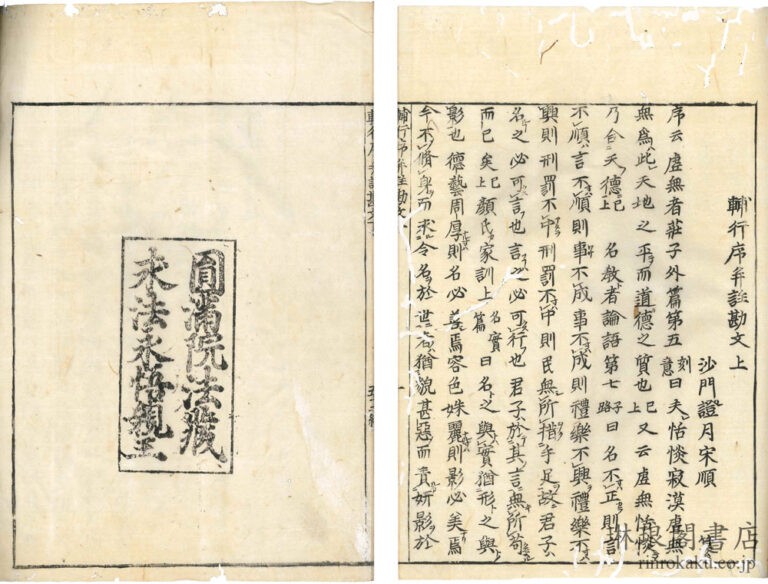 輔行序并註勘文上
沙門證月宋順
序云虛無者莊子外篇第五刻意曰夫恬惔寂漠虛無
無為此天地之平而道德之質也已上又云虛無恬惔
乃合天德已上名教者論語第七子路曰名不正則言
不順言不順則事不成事不成則禮樂不興禮樂不
興則刑罰不中刑罰不中則民無所措手足故君子
名之必可言也言之必可行也君子於其言無所苟
而已矣已上顏氏家訓上名實篇曰名之與實猶形之與
影也德藝周厚則名必善焉容色姝麗則影必美焉
今不脩身而求令名於世者猶貌甚惡而責妍影於
輔行序并註勘文
輔行序并註勘文
圓滿院法藏
求法永悟親王
琳琅閣書店
rinrokaku.co.jp